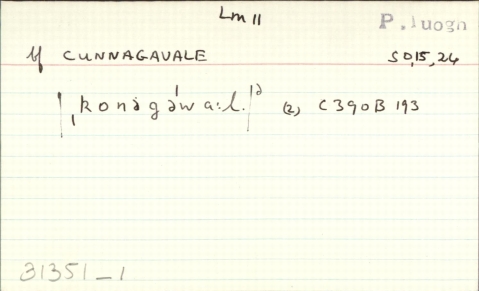 Lm 11
P. luogn
Y CUNNAGAVALE S 0,15,24
|ˌkonəgˈəwaːl.|² (2) C390B 193
31351_1